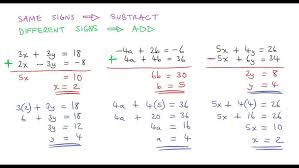 SAME SIGNS ⇒ SUBTRACT
DIFFERENT SIGNS ⇒ ADD
3x + 3y = 18
+ 2x - 3y = -8
5x = 10
x = 2
3(2) + 3y = 18
6 + 3y = 18
3y = 12
y = 4
-4a + 2b = -6
+ 4a + 4b = 36
6b = 30
b = 5
4a + 4(5) = 36
4a + 20 = 36
4a = 16
a = 4
5x + 6y = 34
- 5x + 4y = 26
2y = 8
y = 4
5x + 4(4) = 26
5x + 16 = 26
5x = 10
x = 2